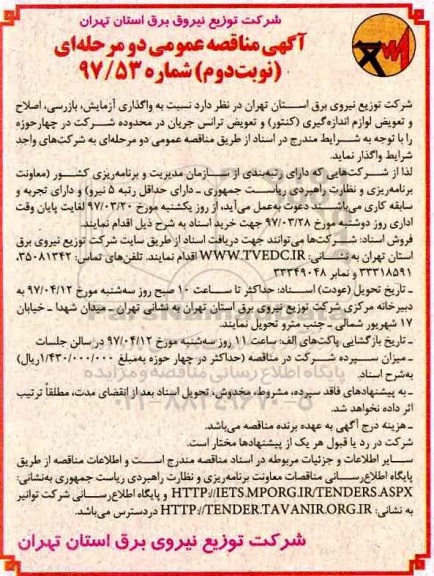 شرکت توزیع نیروی برق استان تهران
آگهی مناقصه عمومی دو مرحله‌ای
(نوبت دوم) شماره ۹۷/۵۳
شرکت توزیع نیروی برق استان تهران در نظر دارد نسبت به واگذاری آزمایش، بازرسی، اصلاح
و تعویض لوازم اندازه‌گیری (کنتور) و تعویض ترانس جریان در محدوده شرکت در چهارحوزه
را با توجه به شرایط مندرج در اسناد از طریق مناقصه عمومی دو مرحله‌ای به شرکت‌های واجد
شرایط واگذار نماید.
لذا از شرکت‌هایی که دارای رتبه‌بندی از سازمان مدیریت و برنامه‌ریزی کشور (معاونت
برنامه‌ریزی و نظارت راهبردی ریاست جمهوری ـ دارای حداقل رتبه ۵ نیرو) و دارای تجربه و
سابقه کاری می‌باشند دعوت به‌عمل می‌آید، از روز یکشنبه مورخ ۹۷/۰۳/۲۰ لغایت پایان وقت
اداری روز دوشنبه مورخ ۹۷/۰۳/۲۸ جهت خرید اسناد به شرح ذیل اقدام نمایند.
فروش اسناد: شرکت‌ها می‌توانند جهت دریافت اسناد از طریق سایت شرکت توزیع نیروی برق
استان تهران به نشانی: WWW.TVEDC.IR اقدام نمایند. تلفن‌های تماس: ۳۵۰۸۱۳۴۲،
۳۳۳۱۸۵۹۱ و نمابر ۳۳۳۴۹۰۴۸
ـ تاریخ تحویل (عودت) اسناد: حداکثر تا ساعت ۱۰ صبح روز سه‌شنبه مورخ ۹۷/۰۴/۱۲ به
دبیرخانه مرکزی شرکت توزیع نیروی برق استان تهران به نشانی تهران ـ میدان شهدا ـ خیابان
۱۷ شهریور شمالی ـ جنب مترو تحویل نمایند.
ـ تاریخ بازگشایی پاکت‌های الف: ساعت ۱۱ روز سه‌شنبه مورخ ۹۷/۰۴/۱۲ در سالن جلسات
ـ میزان سپرده شرکت در مناقصه (حداکثر در چهار حوزه به‌مبلغ ۱/۴۳۰/۰۰۰/۰۰۰ریال)
به‌شرح اسناد.
ـ به پیشنهادهای فاقد سپرده، مشروط، مخدوش، تحویل اسناد بعد از انقضای مدت، مطلقاً ترتیب
اثر داده نخواهد شد.
ـ هزینه درج آگهی به عهده برنده مناقصه می‌باشد.
شرکت در رد یا قبول هر یک از پیشنهادها مختار است.
سایر اطلاعات و جزئیات مربوطه در اسناد مناقصه مندرج است و اطلاعات مناقصه از طریق
پایگاه اطلاع‌رسانی مناقصات معاونت برنامه‌ریزی و نظارت راهبردی ریاست جمهوری به‌نشانی:
HTTP://IETS.MPORG.IR/TENDERS.ASPX و پایگاه اطلاع‌رسانی شرکت توانیر
به نشانی: HTTP://TENDER.TAVANIR.ORG.IR دردسترس می‌باشد.
شرکت توزیع نیروی برق استان تهران